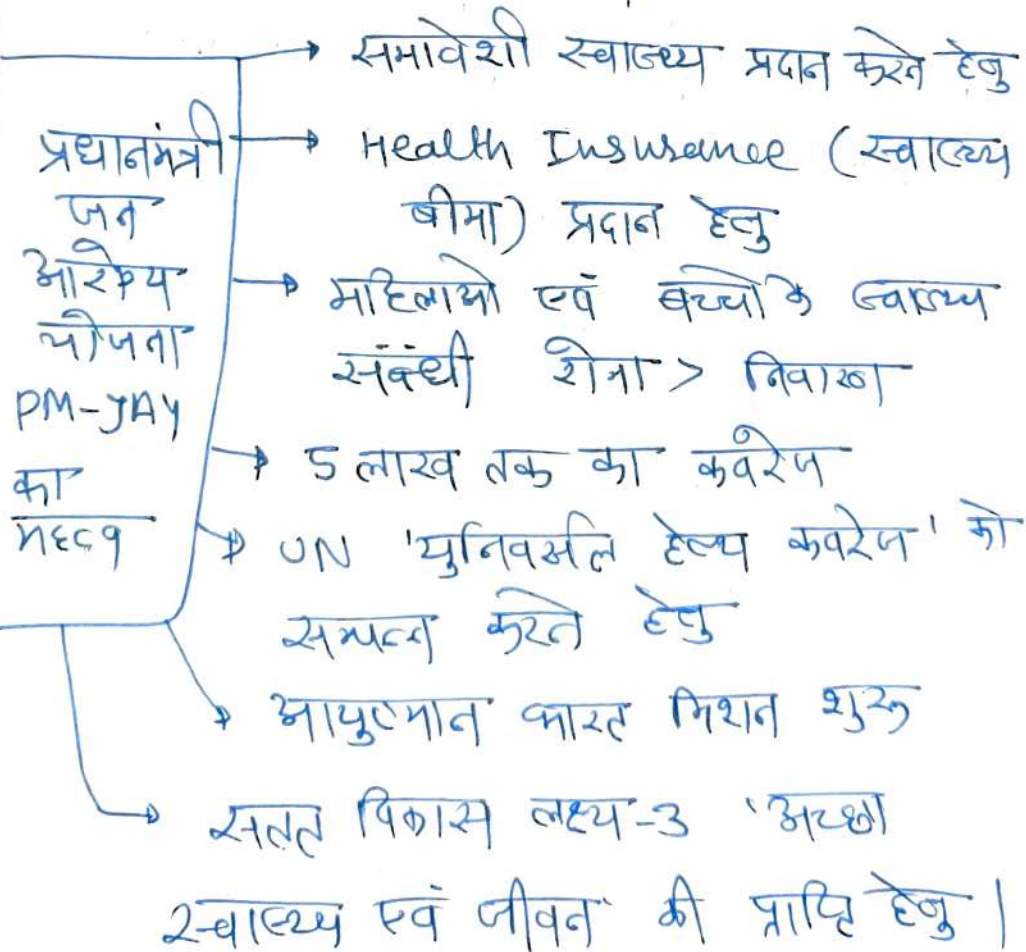 प्रधानमंत्री
जन
आरोग्य
योजना
PM-JAY
का
महत्व
समावेशी स्वास्थ्य प्रदान करने हेतु
Health Insurance (स्वास्थ्य
बीमा) प्रदान हेतु
महिलाओ एवं बच्चों के स्वास्थ्य
संबंधी > निवारण
5 लाख तक का कवरेज
UN 'युनिवर्सल हेल्थ कवरेज' को
सम्पन्न करने हेतु
आयुष्मान भारत मिशन शुरू
सतत विकास लक्ष्य-3 'अच्छा
स्वास्थ्य एवं जीवन' की प्राप्ति हेतु।